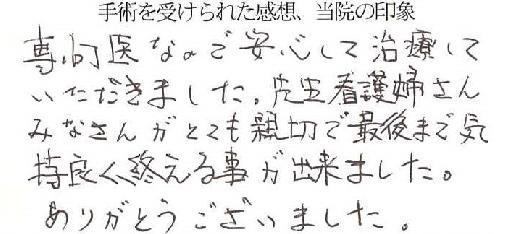 手術を受けられた感想、当院の印象
専門医なので安心して治療して
いただきました。先生看護婦さん
みなさんがとても親切で最後まで気
持良く終える事が出来ました。
ありがとうございました。